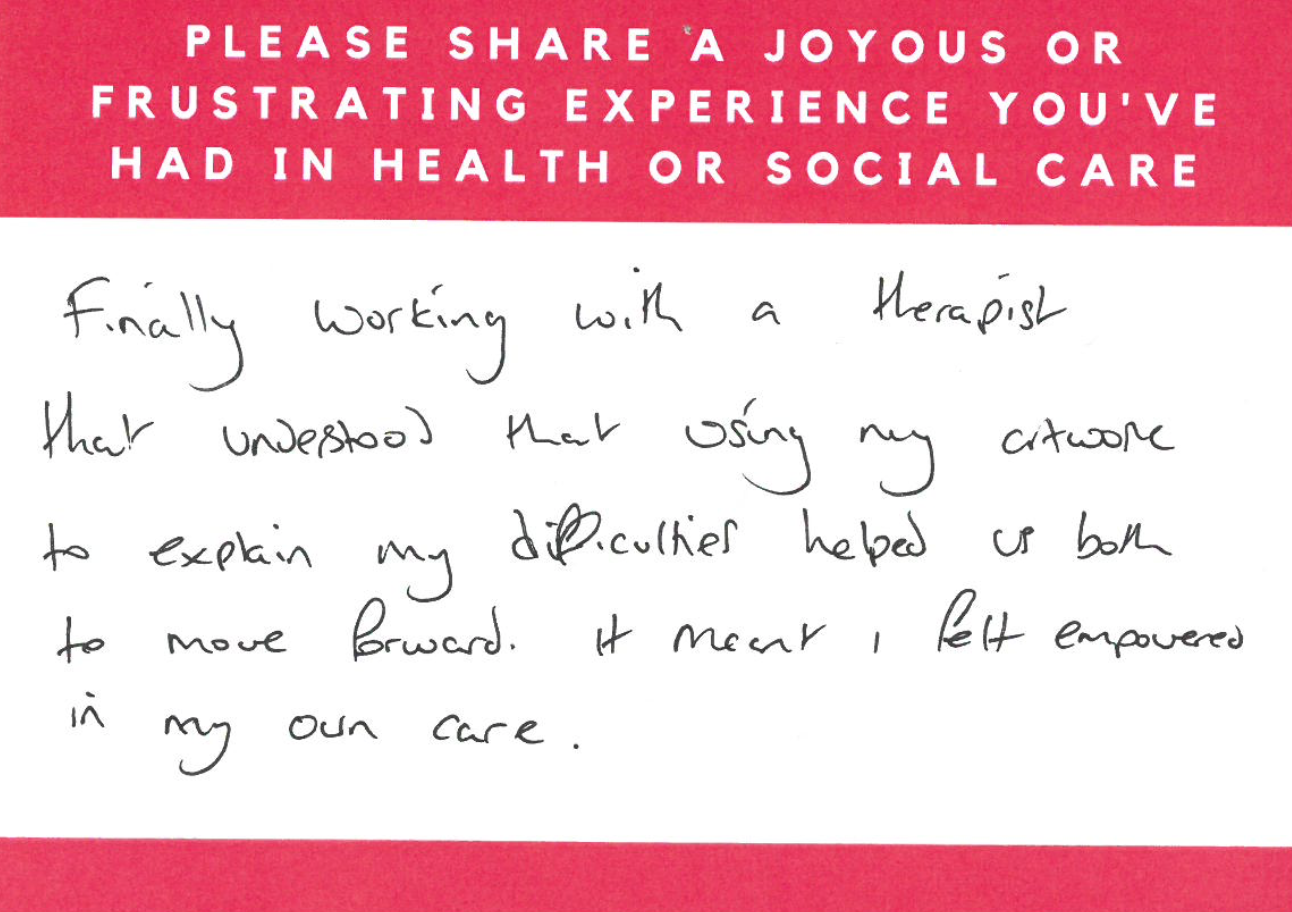 PLEASE SHARE A JOYOUS OR
FRUSTRATING EXPERIENCE YOU'VE
HAD IN HEALTH OR SOCIAL CARE
Finally working with a therapist
that understood that using my artwork
to explain my difficulties helped us both
to move forward. It meant I felt empowered
in my own care.